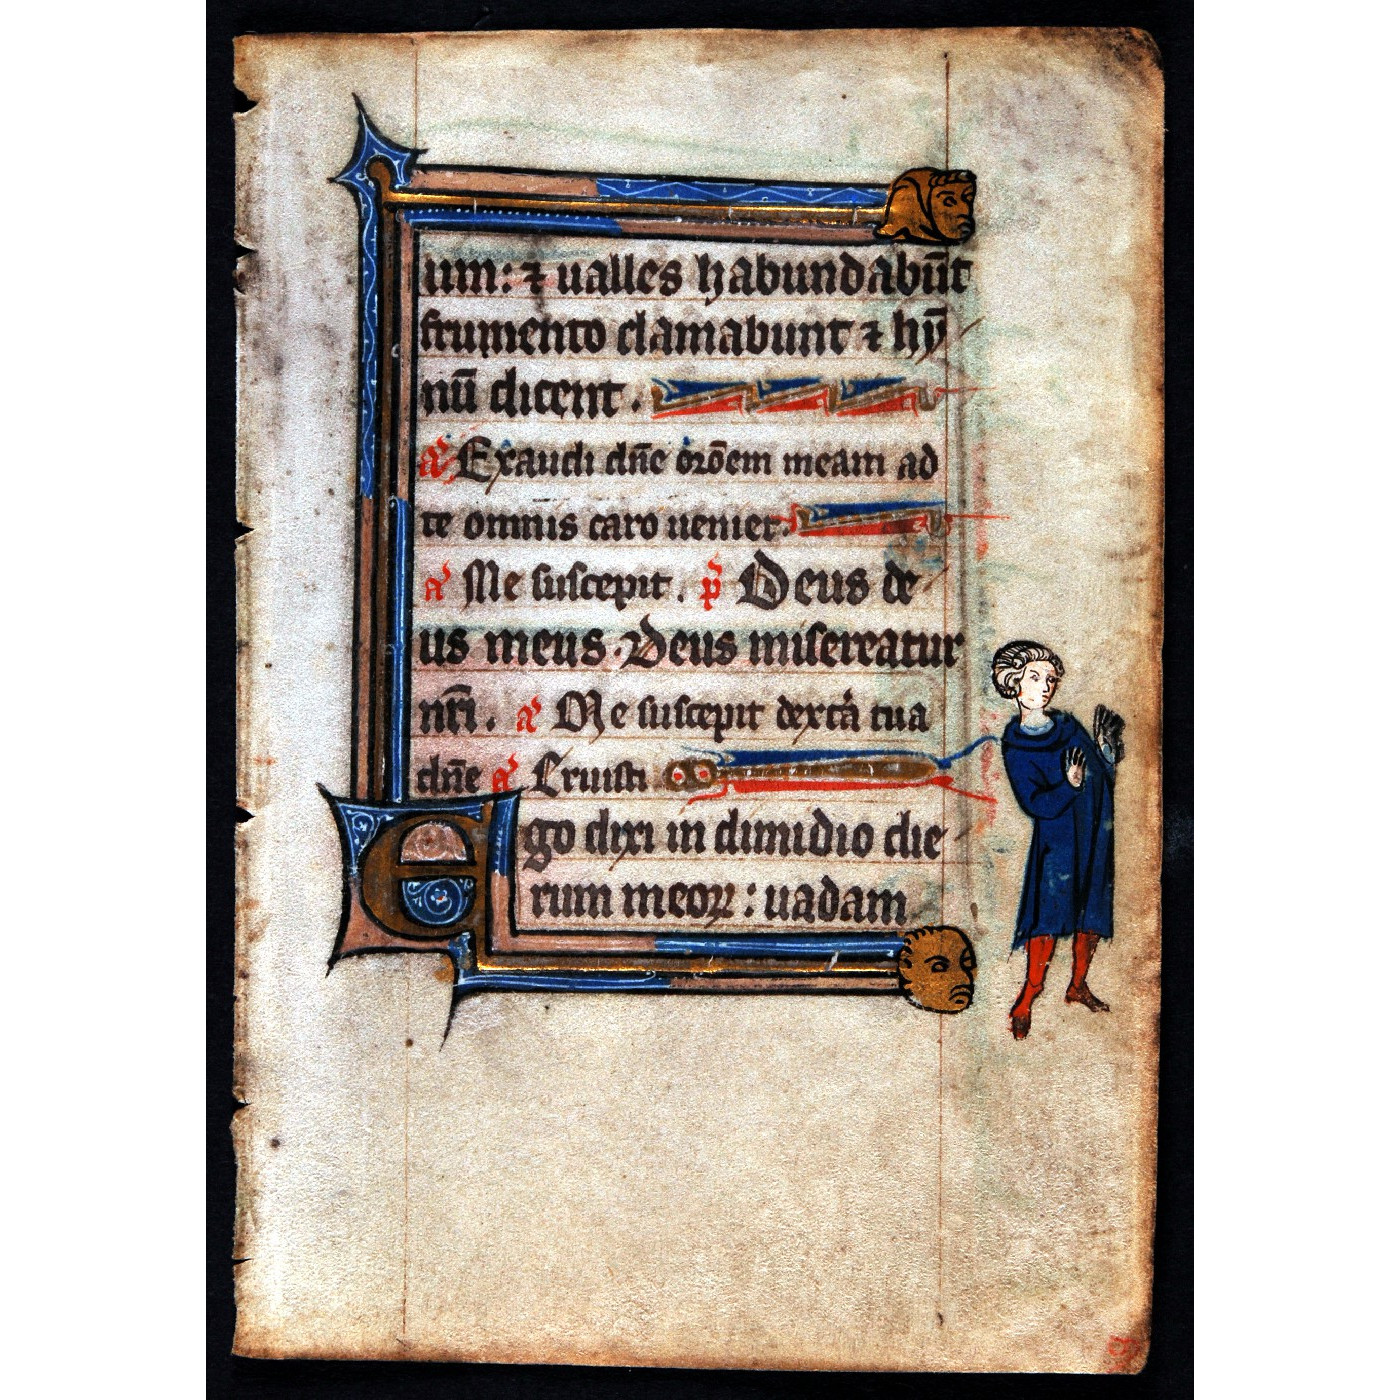 um: ⁊ ualles habundabūt
frumento clamabunt ⁊ hȳ
nū dicent.
a᷎ Exaudi dn̄e orōem meam ad
te omnis caro ueniet.
a᷎ Me suscepit. p̄s Deus de
us meus. Deus misereatur
nr̄i. a᷎ Me suscepit dextͣa tua
dn̄e a᷎ Eruisti
Ego dixi in dimidio die
rum meoꝝ: uadam